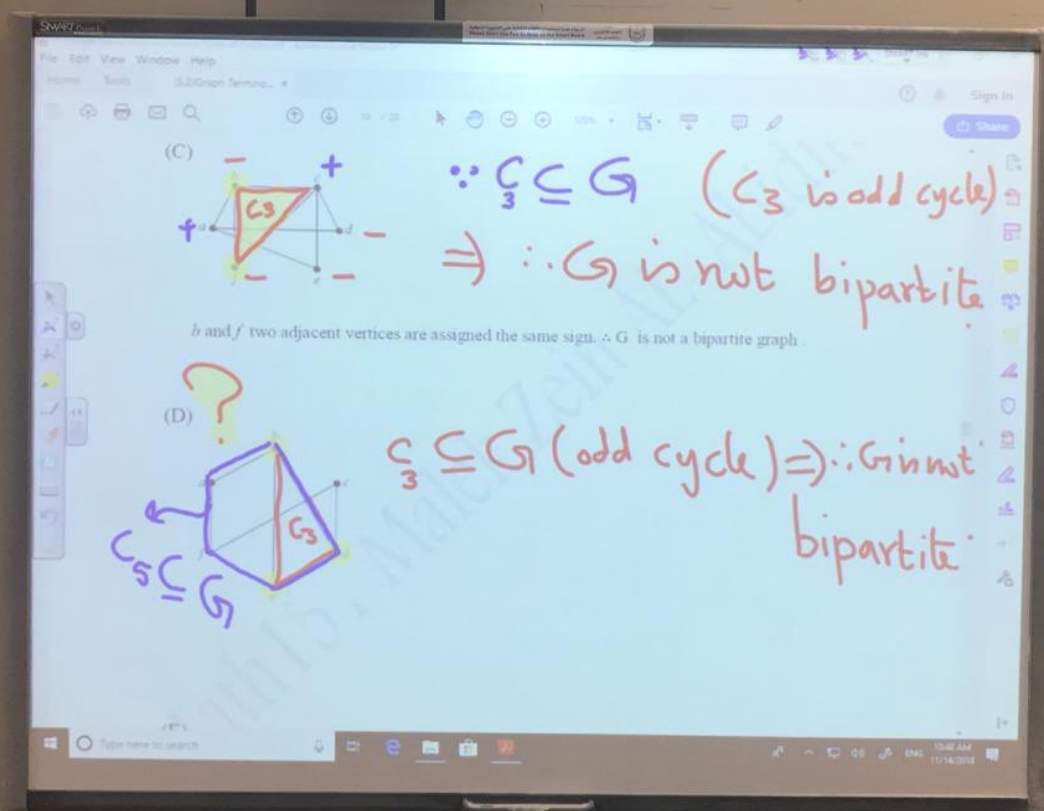 SMART
File Edit View Window Help
Home Tools (5.2)Graph Termino... ×
Sign In
125%
Share
(C)
− +
b c
C3
+ a d −
f − e −
∵ C3 ⊆ G (C3 is odd cycle)
⇒ ∴ G is not bipartite
b and f two adjacent vertices are assigned the same sign. ∴ G is not a bipartite graph .
?
(D)
C3
C3 ⊆ G (odd cycle) ⇒ ∴ G is not
bipartite
C5 ⊆ G
Type here to search
ENG
10:48 AM
11/14/2018